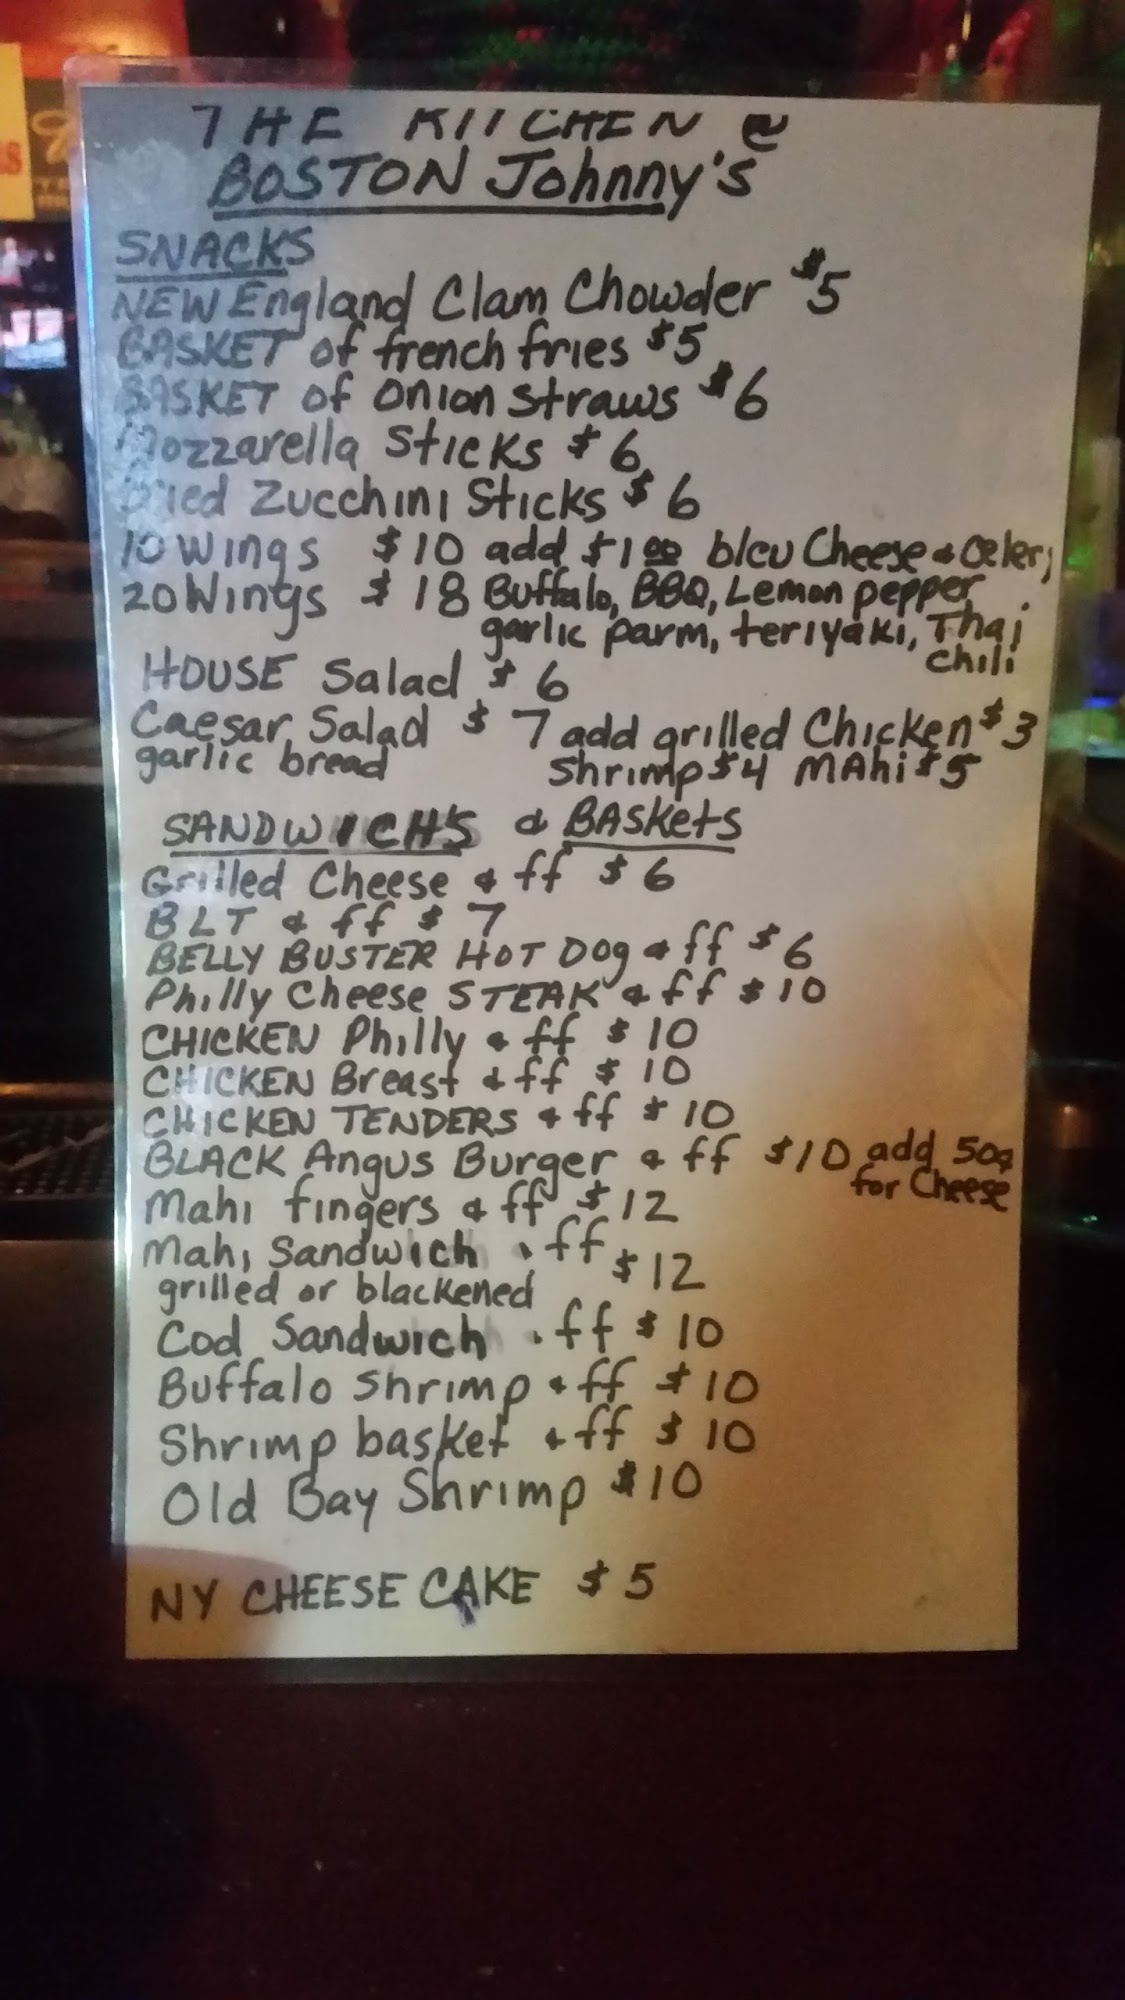 THE KITCHEN @
BOSTON Johnny's
SNACKS
NEW England Clam Chowder $5
BASKET of french fries $5
BASKET of onion straws $6
Mozzarella Sticks $6
Fried Zucchini Sticks $6
10 Wings $10 add $1.00 bleu Cheese & Celery
20 Wings $18 Buffalo, BBQ, Lemon pepper
garlic parm, teriyaki, Thai
chili
HOUSE Salad $6
Caesar Salad $7 add grilled Chicken $3
garlic bread shrimp $4 MAhi $5
SANDWICH'S & BASKETS
Grilled Cheese & ff $6
BLT & ff $7
BELLY BUSTER HOT DOg & ff $6
Philly Cheese STEAK & ff $10
CHICKEN Philly & ff $10
CHICKEN Breast & ff $10
CHICKEN TENDERS & ff $10
BLACK Angus Burger & ff $10 add 50¢
for Cheese
Mahi fingers & ff $12
Mahi Sandwich & ff $12
grilled or blackened
Cod Sandwich & ff $10
Buffalo Shrimp & ff $10
Shrimp basket & ff $10
Old Bay Shrimp $10
NY CHEESE CAKE $5